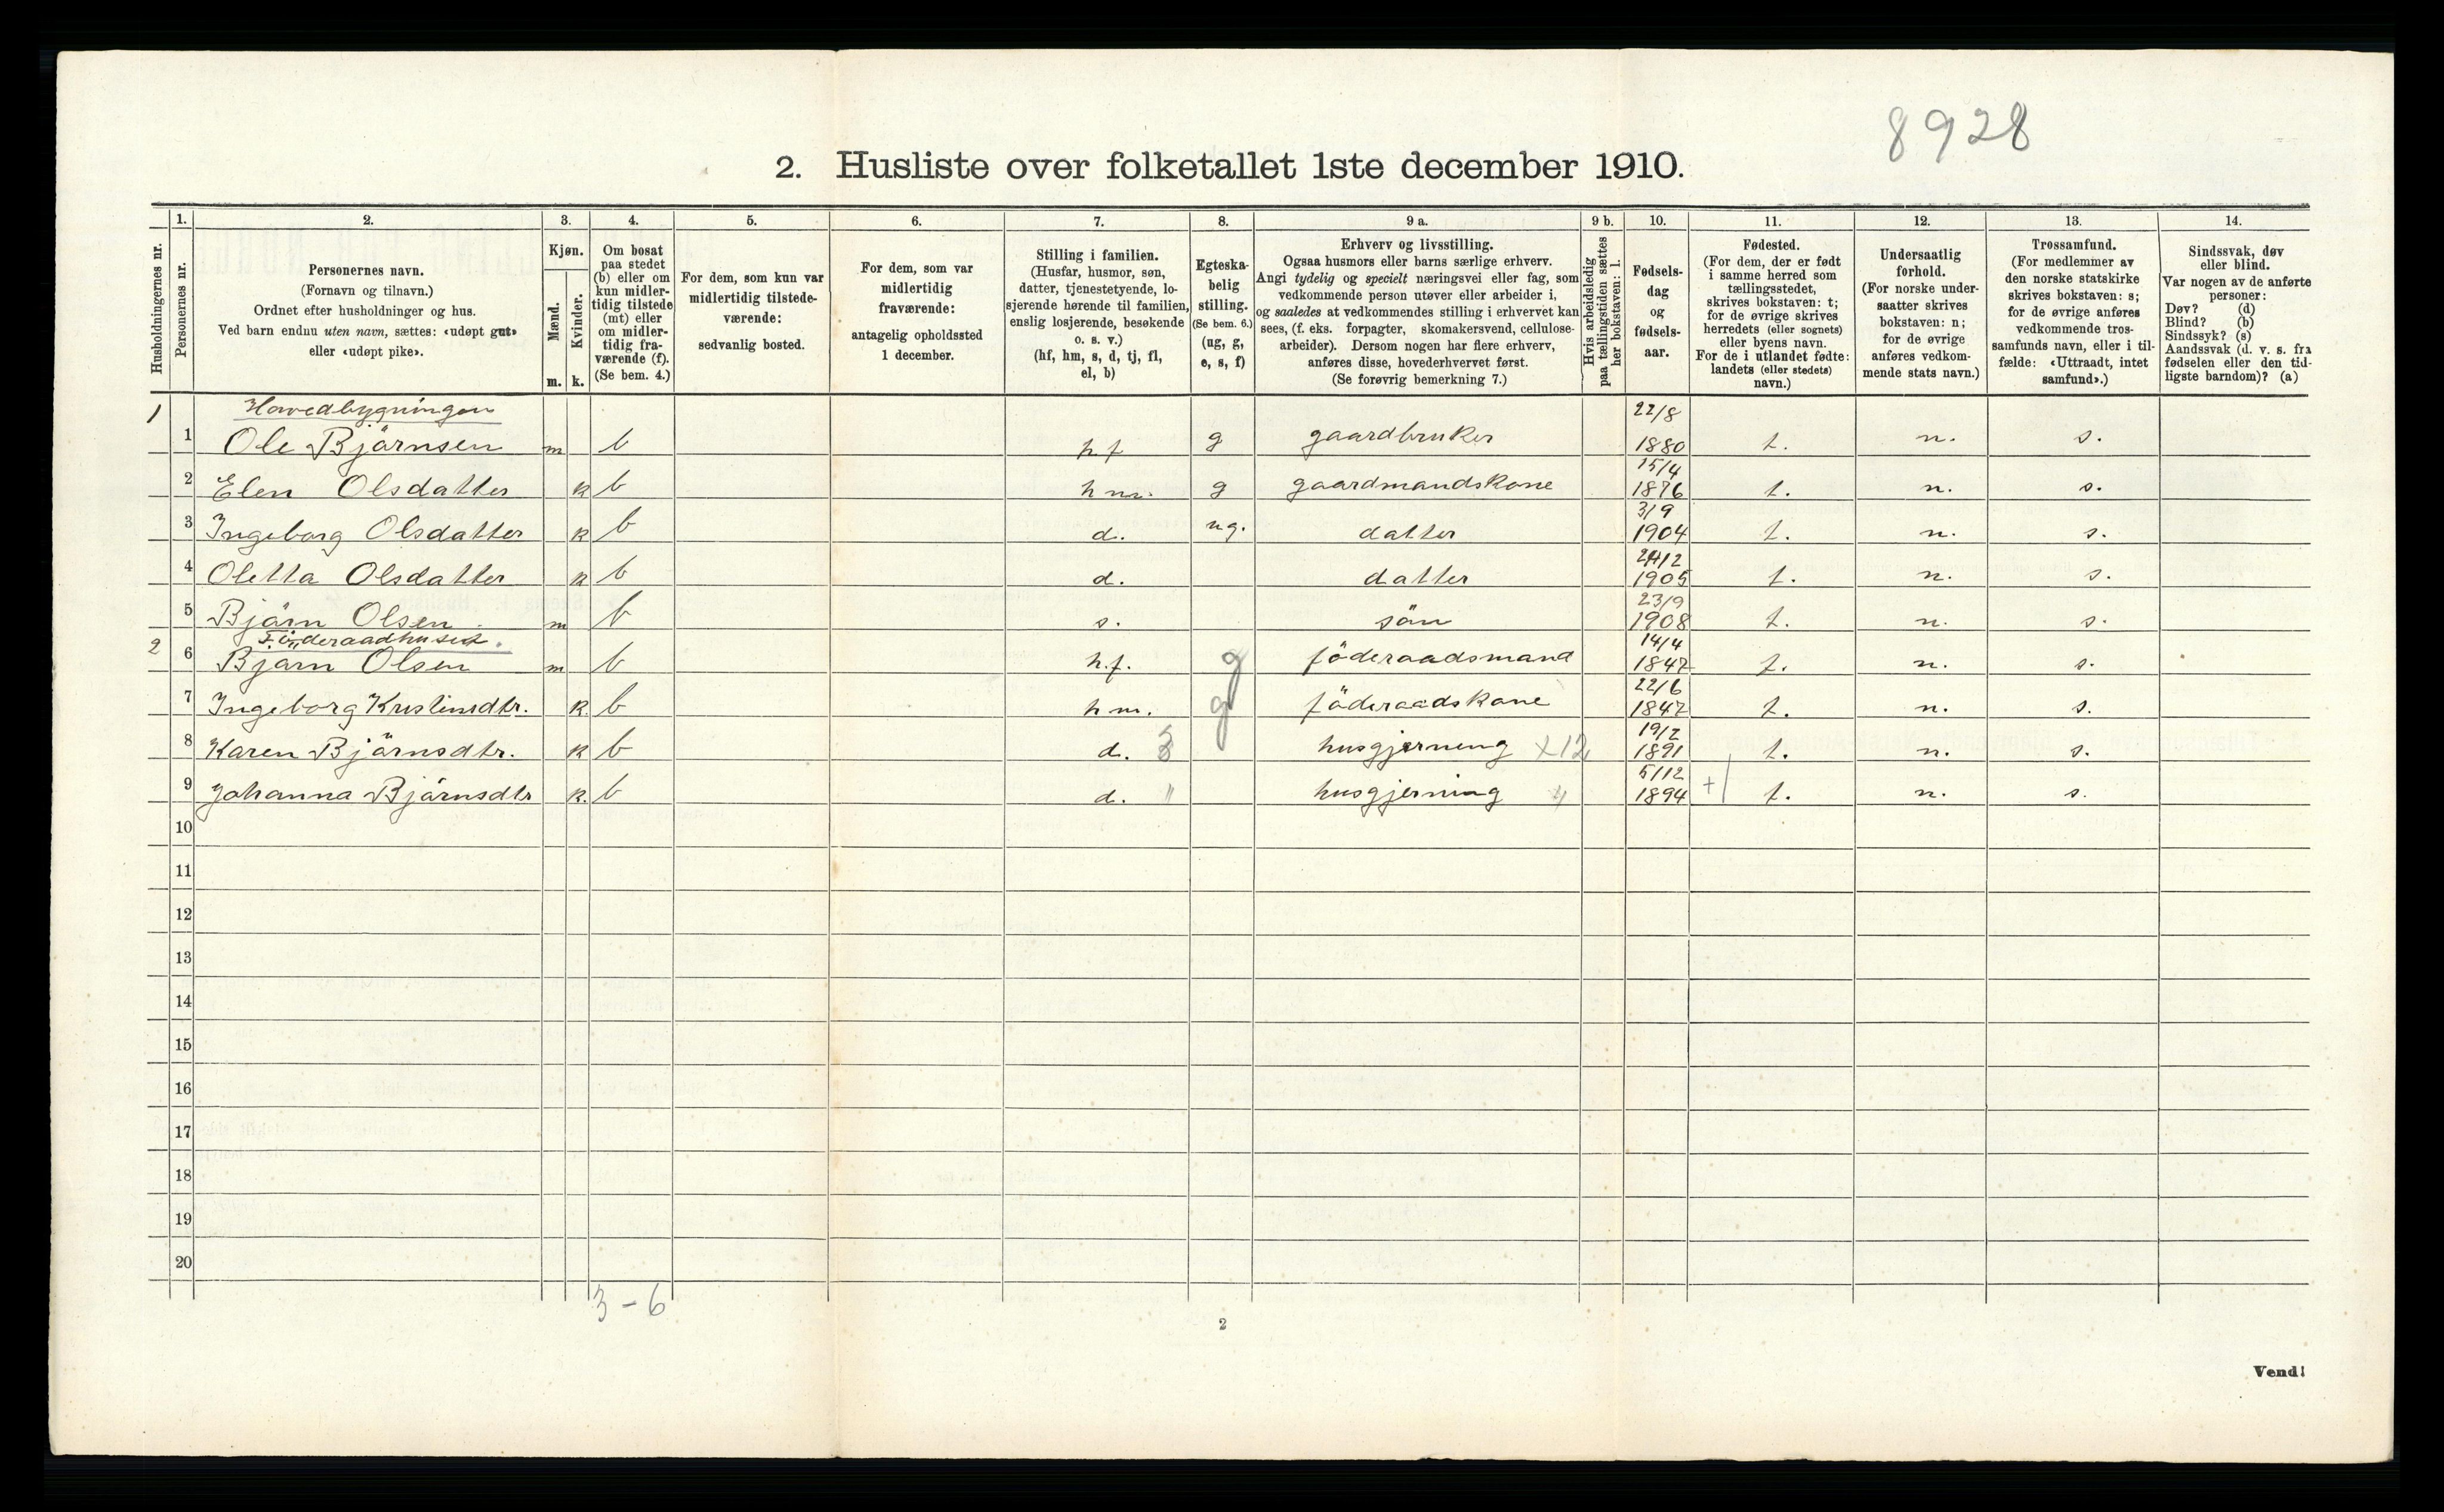 8928
2. Husliste over folketallet 1ste december 1910.
Husholdningernes nr.
1.
Personernes nr.
2.
Personernes navn.
(Fornavn og tilnavn.)
Ordnet efter husholdninger og hus.
Ved barn endnu uten navn, sættes: «udøpt gut»
eller «udøpt pike».
3.
Kjøn.
Mænd.
Kvinder.
m. k.
4.
Om bosat
paa stedet
(b) eller om
kun midler-
tidig tilstede
(mt) eller
om midler-
tidig fra-
værende (f).
(Se bem. 4.)
5.
For dem, som kun var
midlertidig tilstede-
værende:
sedvanlig bosted.
6.
For dem, som var
midlertidig
fraværende:
antagelig opholdssted
1 december.
7.
Stilling i familien.
(Husfar, husmor, søn,
datter, tjenestetyende, lo-
sjerende hørende til familien,
enslig losjerende, besøkende
o. s. v.)
(hf, hm, s, d, tj, fl,
el, b)
8.
Egteska-
belig
stilling.
(Se bem. 6.)
(ug, g,
e, s, f)
9 a.
Erhverv og livsstilling.
Ogsaa husmors eller barns særlige erhverv.
Angi tydelig og specielt næringsvei eller fag, som
vedkommende person utøver eller arbeider i,
og saaledes at vedkommendes stilling i erhvervet kan
sees, (f. eks. forpagter, skomakersvend, cellulose-
arbeider). Dersom nogen har flere erhverv,
anføres disse, hovederhvervet først.
(Se forøvrig bemerkning 7.)
9 b.
Hvis arbeidsledig
paa tællingstiden sættes
her bokstaven: l.
10.
Fødsels-
dag
og
fødsels-
aar.
11.
Fødested.
(For dem, der er født
i samme herred som
tællingsstedet,
skrives bokstaven: t;
for de øvrige skrives
herredets (eller sognets)
eller byens navn.
For de i utlandet fødte:
landets (eller stedets)
navn.)
12.
Undersaatlig
forhold.
(For norske under-
saatter skrives
bokstaven: n;
for de øvrige
anføres vedkom-
mende stats navn.)
13.
Trossamfund.
(For medlemmer av
den norske statskirke
skrives bokstaven: s;
for de øvrige anføres
vedkommende tros-
samfunds navn, eller i til-
fælde: «Uttraadt, intet
samfund».)
14.
Sindssvak, døv
eller blind.
Var nogen av de anførte
personer:
Døv? (d)
Blind? (b)
Sindssyk? (s)
Aandssvak (d. v. s. fra
fødselen eller den tid-
ligste barndom)? (a)
1 Hovedbygningen
1 Ole Björnsen m b hf g gaardbruker 22/8 1880 t. n. s.
2 Elen Olsdatter k b hm. g gaardmandskone 15/4 1876 t. n. s.
3 Ingeborg Olsdatter k b d. ug. datter 3/9 1904 t. n. s.
4 Oletta Olsdatter k b d. datter 24/12 1905 t. n. s.
5 Björn Olsen m b s. sön 23/9 1908 t. n. s.
2 Föderaadhuset.
6 Björn Olsen m b h.f. g föderaadsmand 14/4 1847 t. n. s.
7 Ingeborg Kristinsdtr. k. b hm. g föderaadskone 22/6 1847 t. n. s.
8 Karen Björnsdtr. k b d. husgjerning x12 19/2 1891 t. n. s.
9 Johanna Björnsdtr k. b d. " husgjerning 5/12 1894 + t. n. s.
10
11
12
13
14
15
16
17
18
19
20
3-6
2
Vend!